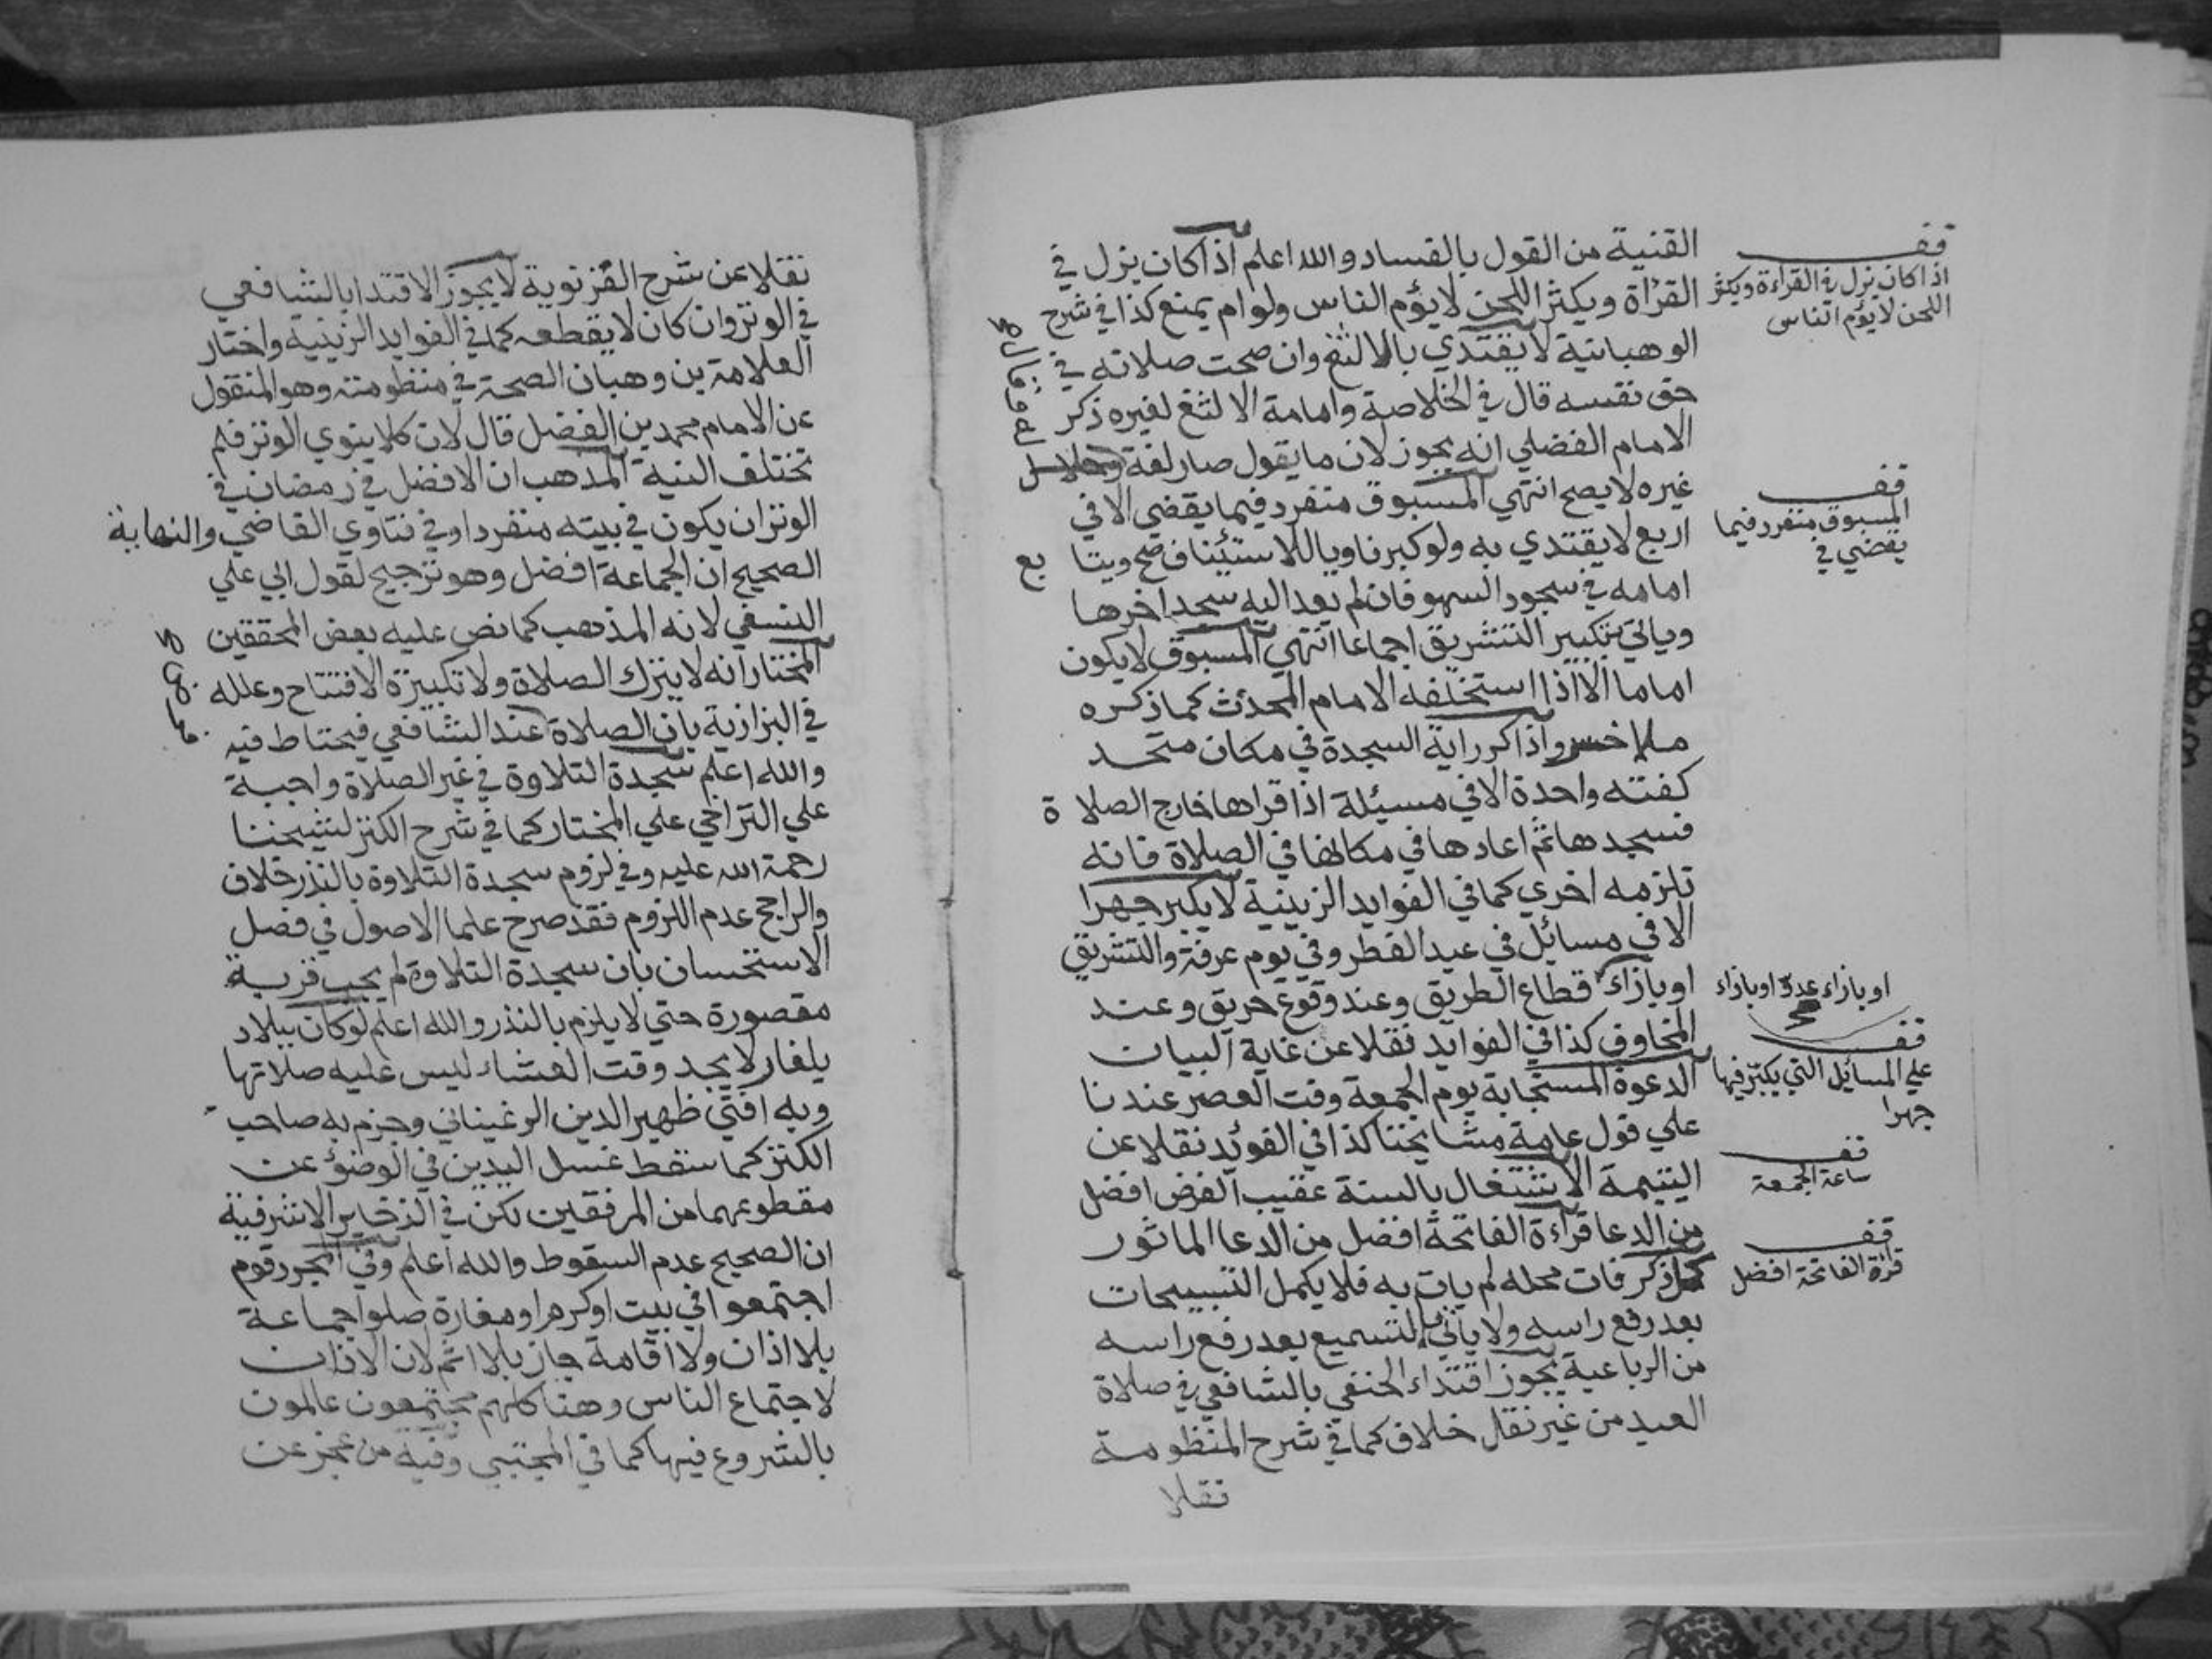 القنية من القول بالفساد والله اعلم اذا كان يزل في
القرأة ويكثر اللحن لا يؤم الناس ولو ام يمنع كذا في شرح
الوهبانية لا يقتدي بالالثغ وان صحت صلاته في
حق نفسه قال في الخلاصة وامامة الالثغ لغيره ذكر
الامام الفضلي انه يجوز لان ما يقول صار لغة
غيره لا يصح انتهي المسبوق منفرد فيما يقضي الا في
اربع لا يقتدي به ولو كبر ناويا للاستئناف صح ويتا بع
امامه في سجود السهو فان لم يعد اليه سجد اخرها
وياتي بتكبير التشريق اجماعا انتهي المسبوق لا يكون
اماما الا اذا استخلفه الامام المحدث كما ذكره
ملا خسرو اذا كرر اية السجدة في مكان متحد
كفته واحدة الا في مسيئلة اذا قراها خارج الصلا ة
فسجد ها ثم اعادها في مكانها في الصلاة فانه
تلزمه اخري كما في الفوايد الزينية لا يكبر جهرا
الا في مسائل في عيد الفطر وفي يوم عرفة والتشريق
او بازاء قطاع الطريق وعند وقوع حريق وعند
المخاوف كذا في الفوايد نقلا عن غاية البيان
الدعوة المستجابة يوم الجمعة وقت العصر عندنا
علي قول عامة مشايخنا كذا في الفوئد نقلا عن
اليتيمة الاشتغال بالسنة عقيب الفرض افضل
من الدعا قراءة الفاتحة افضل من الدعا الماثور
كل ذكر فات محله لم يات به فلا يكمل التسبيحات
بعد رفع راسه ولا ياتي بالتسميع بعد رفع راسه
من الرباعية يجوز اقتداء الحنفي بالشافعي في صلاة
العيد من غير نقل خلاف كما في شرح المنظومة
نقلا
قف
اذا كان يزل في القراءة ويكثر
اللحن لا يؤم الناس
قف
المسبوق منفرد فيما
يقضي في
او بازاء عدو او بازاء
قف
علي المسائل التي يكبر فيها
جهرا
قف
ساعة الجمعة
قف
قرأة الفاتحة افضل
نقلا عن شرح الغزنوية لا يجوز الاقتدا بالشافعي
في الوتر وان كان لا يقطعه كما في الفوايد الزينية واختار
العلامة بن وهبان الصحة في منظومته وهو المنقول
عن الامام محمد بن الفضل قال لان كلا ينوي الوتر فلم
تختلف النية المذهب ان الافضل في رمضان في
الوتر ان يكون في بيته منفردا وفي فتاوي القاضي والنهاية
الصحيح ان الجماعة افضل وهو ترجيح لقول ابي علي
النسفي لانه المذهب كما نص عليه بعض المحققين
المختار انه لا يترك الصلاة ولا تكبيرة الافتتاح وعلله
في البزازية بان الصلاة عند الشافعي فيحتاط فيه
والله اعلم سجدة التلاوة في غير الصلاة واجبة
علي التراخي علي المختار كما في شرح الكنز لشيخنا
رحمة الله عليه وفي لزوم سجدة التلاوة بالنذر خلاف
والراجح عدم اللزوم فقد صرح علما الاصول في فصل
الاستحسان بان سجدة التلاوة لم يجب قربة
مقصورة حتي لا يلزم بالنذر والله اعلم لو كان ببلاد
بلغار لا يجد وقت العشاء ليس عليه صلاتها
وبه افتي ظهير الدين المرغيناني وجزم به صاحب
الكنز كما سقط غسل اليدين في الوضؤ عن
مقطوعهما من المرفقين لكن في الذخاير الاشرفية
ان الصحيح عدم السقوط والله اعلم وفي المجرد قوم
اجتمعوا في بيت او كرم او مغارة صلوا جماعة
بلا اذان ولا اقامة جاز بلا اثم لان الاذان
لاجتماع الناس وهنا كلهم مجتمعون عالمون
بالشروع فيها كما في المجتبي وفيه من عجز عن